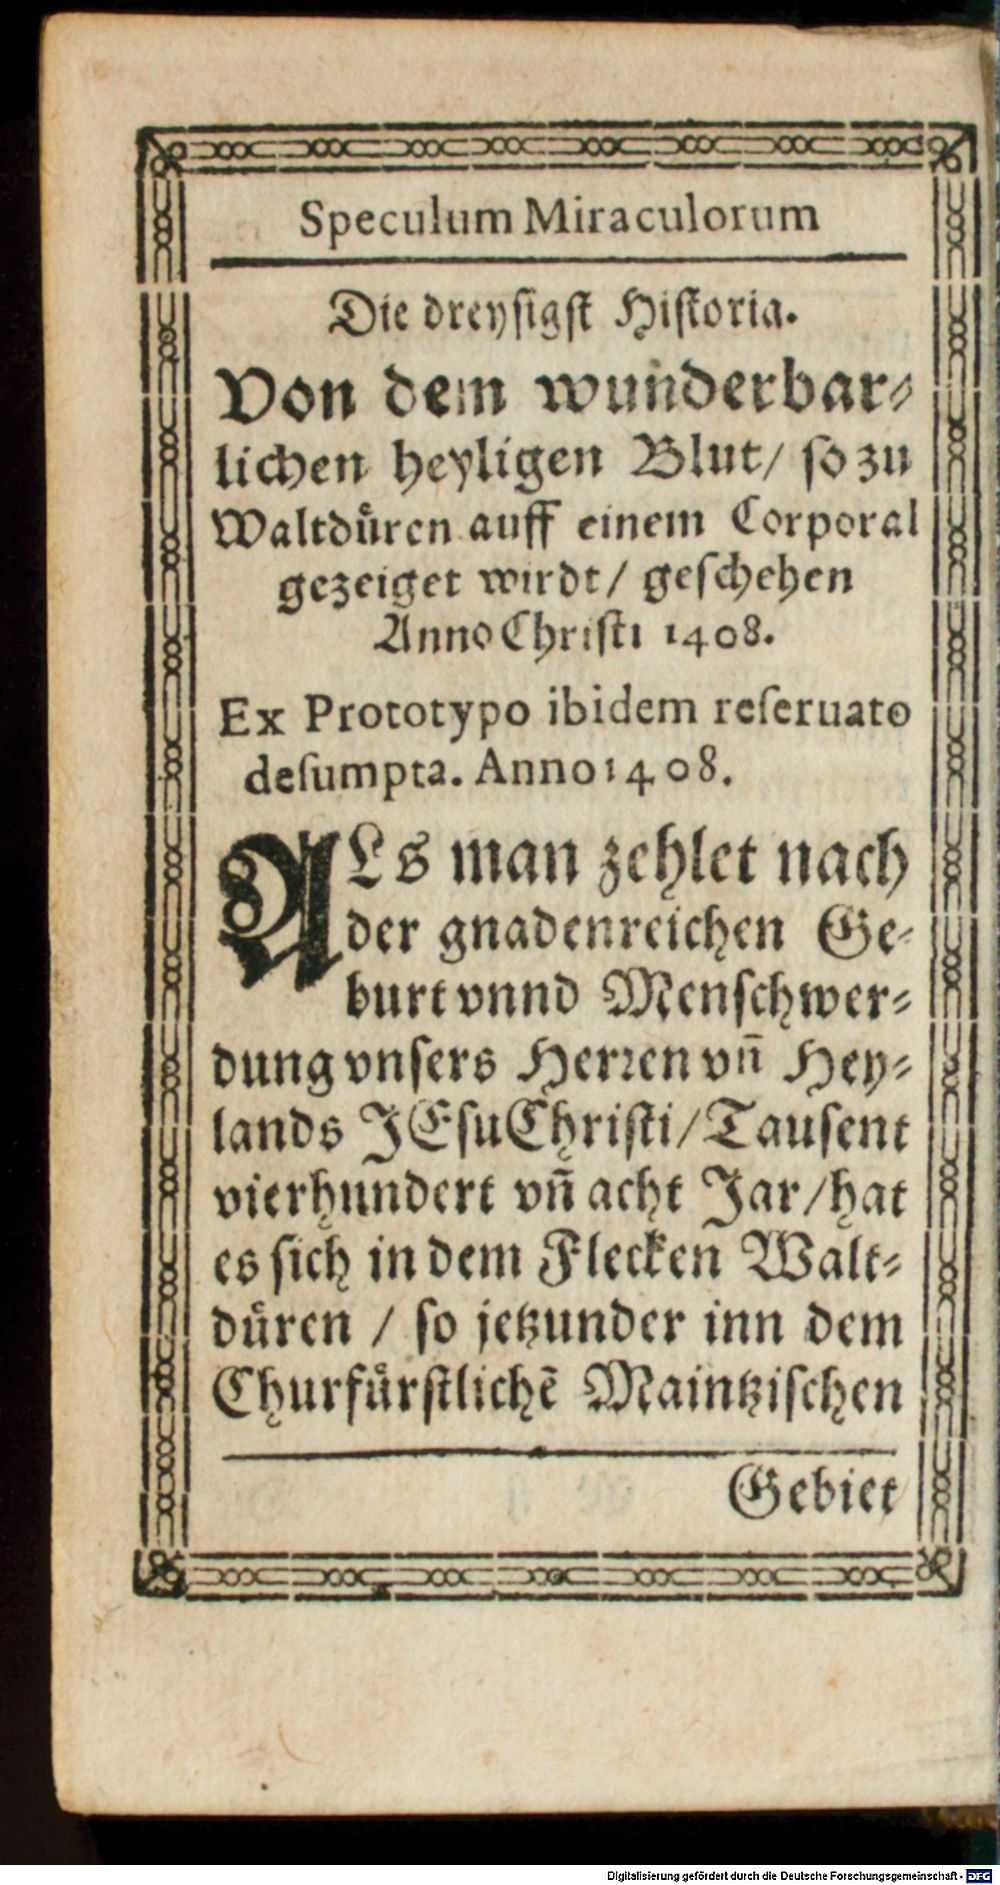 Speculum Miraculorum
Die dreysigst Historia.
Von dem wunderbar⸗
lichen heyligen Blut/ so zu
Waltdüren auff einem Corporal
gezeiget wirdt/ geschehen
Anno Christi 1408.
Ex Prototypo ibidem reseruato
desumpta. Anno 1408.
ALs man zehlet nach
der gnadenreichen Ge⸗
burt vnnd Menschwer⸗
dung vnsers Herren vñ Hey⸗
lands JEsu Christi/ Tausent
vierhundert vñ acht Jar/ hat
es sich in dem Flecken Walt⸗
düren / so jetzunder inn dem
Churfürstlichẽ Maintzischen
Gebiet
Digitalisierung gefördert durch die Deutsche Forschungsgemeinschaft - DFG